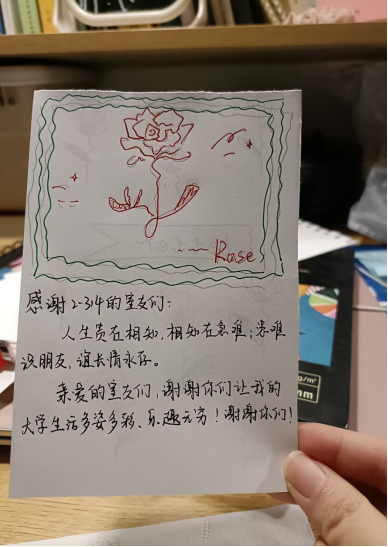 ~~~ Rose
感谢2-314的室友们：
人生贵在相知，相知在急难；患难
识朋友，谊长情永存。
亲爱的室友们，谢谢你们让我的
大学生活多姿多彩、乐趣无穷！谢谢你们！
g/m²
mm